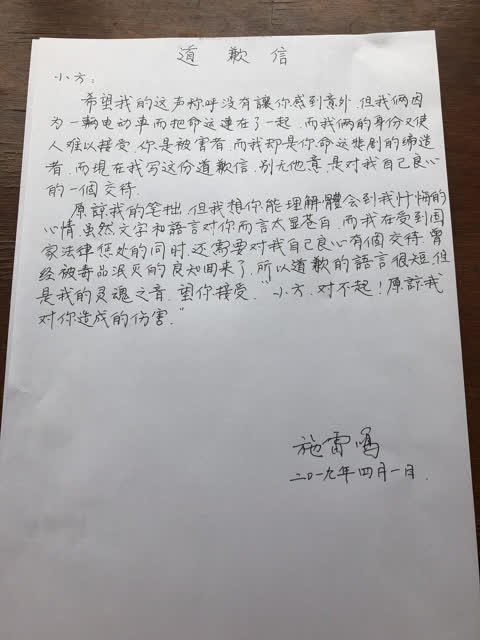 道歉信
小方：
希望我的这声称呼没有讓你感到意外.但我俩因
为一辆电动車而把命运連在了一起.而我俩的身份又使
人难以接受.你是被害者.而我却是你.命运悲剧的缔造
者.而現在我写这份道歉信.别无他意.是对我自己良心
的一個交待.
原諒我的笔拙.但我想你能理解.體会到我忏悔的
心情.虽然文字和語言对你而言太显苍白.而我在受到国
家法律惩处的同时.还需要对我自己良心有個交待.曾
经被毒品泯灭的良知回来了.所以道歉的語言很短.但
是我的灵魂之音.望你接受."小方.对不起！原諒我
对你造成的伤害."
施雷鸣
二〇一九年四月一日.